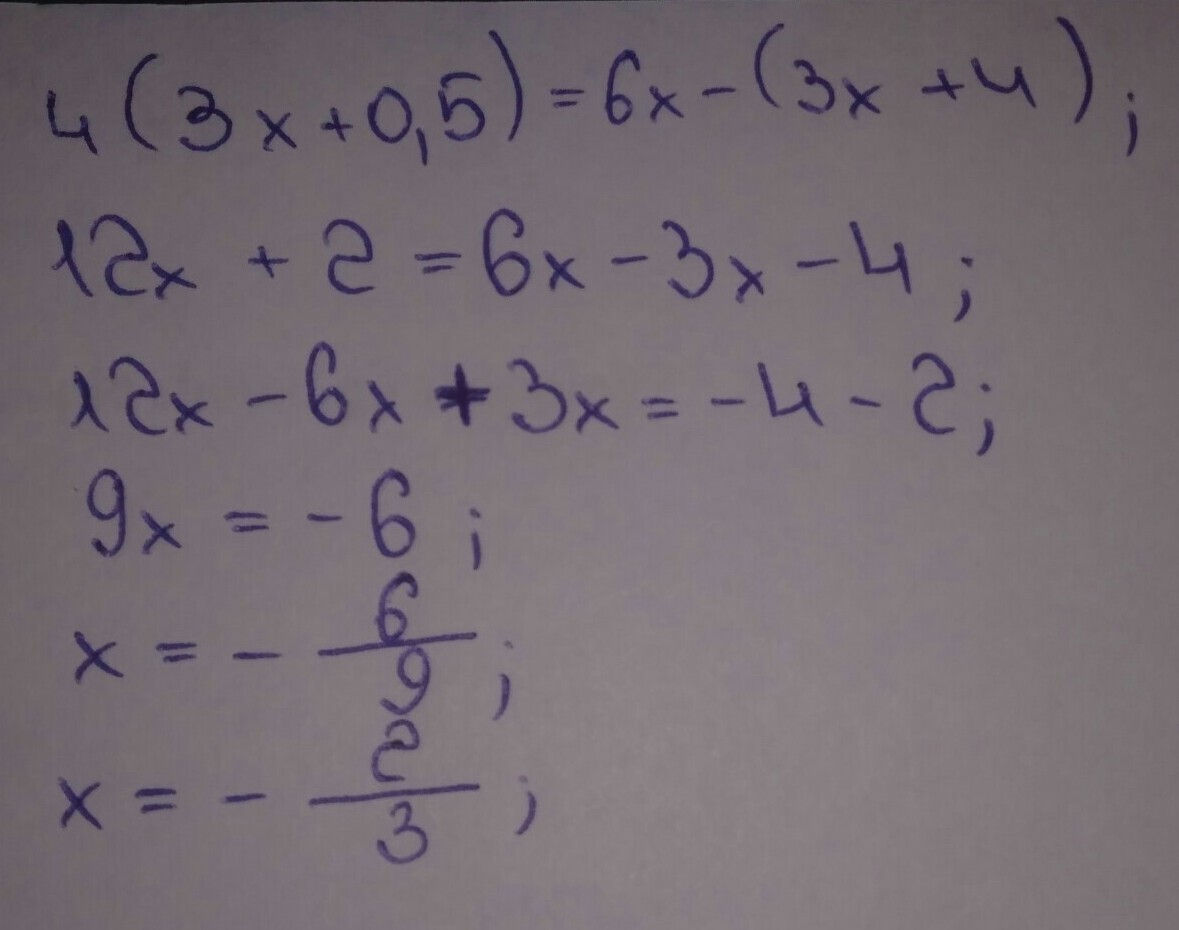 4(3x+0,5)=6x-(3x+4);
12x+2=6x-3x-4;
12x-6x+3x=-4-2;
9x=-6;
x=-6/9;
x=-2/3;